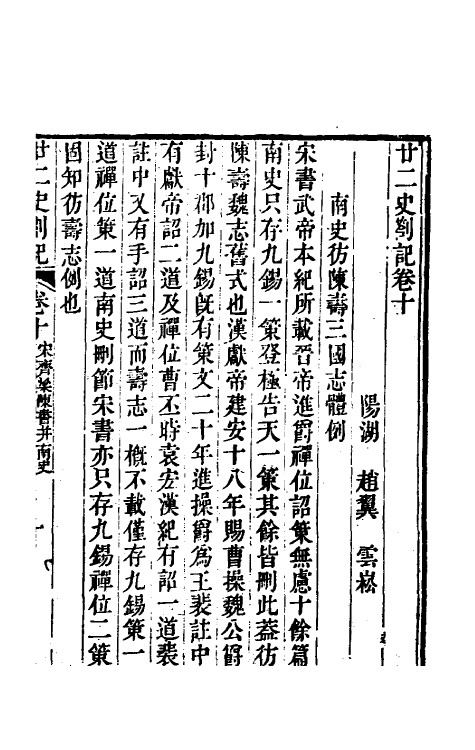 廿二史劄記卷十
陽湖 趙翼 雲崧
南史仿陳壽三國志體例
宋書武帝本紀所載晉帝進爵禪位詔策無慮十餘篇
南史只存九錫一策登極告天一策其餘皆刪此葢仿
陳壽魏志舊式也漢獻帝建安十八年賜曹操魏公爵
封十郡加九錫旣有策文二十年進操爵爲王裴註中
有獻帝詔二道及禪位曹丕時袁宏漢紀有詔一道裴
註中又有手詔三道而壽志一槪不載僅存九錫策一
道禪位策一道南史刪節宋書亦只存九錫禪位二策
固知仿壽志例也
廿二史劄記 卷十 宋齊梁陳書并南史 一